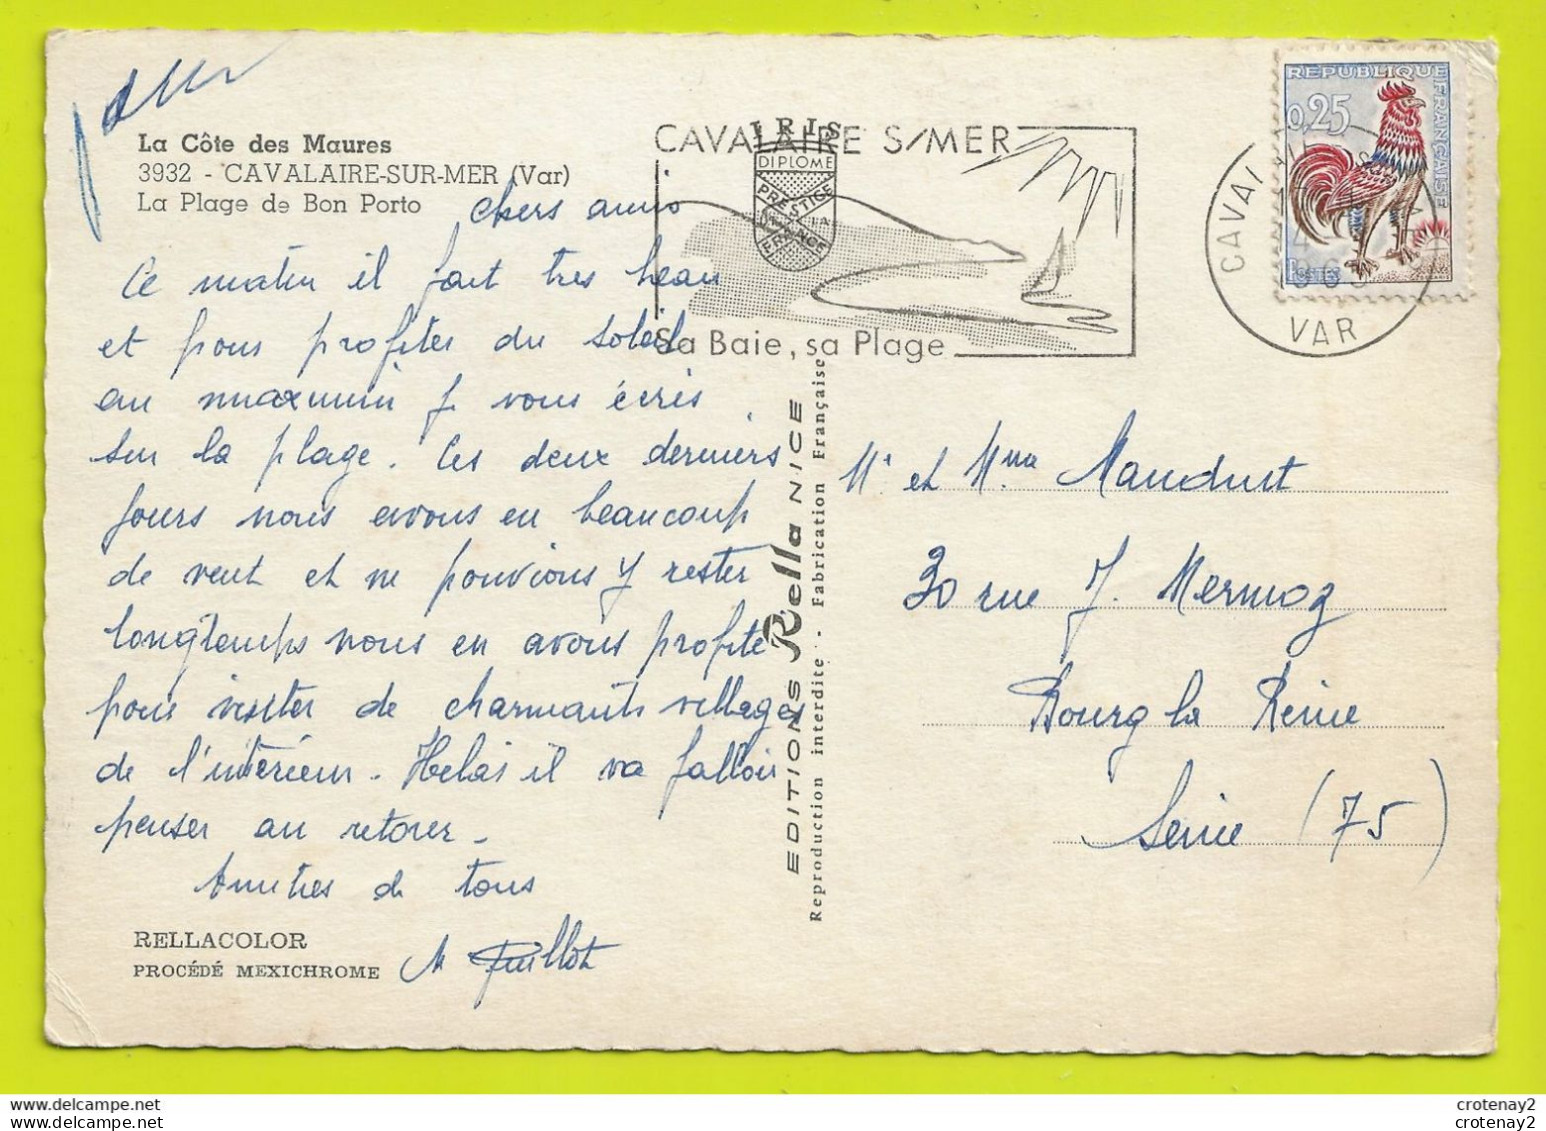 La Côte des Maures
3932 - CAVALAIRE-SUR-MER (Var)
La Plage de Bon Porto
chers amis
Ce matin il fait tres beau
et pour profiter du soleil
au maximum je vous écris
sur la plage. Ces deux derniers
jours nous avons eu beaucoup
de vent et ne pouvions y rester
longtemps nous en avons profité
pour visiter de charmants villages
de l'intérieur - Helas il va falloir
penser au retour -
Amitiés de tous
RELLACOLOR
PROCÉDÉ MEXICHROME
IRIS
DIPLOME
PRESTIGE
FRANCE
CAVALAIRE S/MER
Sa Baie, sa Plage
EDITIONS Rella NICE
Reproduction interdite - Fabrication Française
REPUBLIQUE FRANÇAISE
0,25
POSTES
VAR
Mr et Mme Mauduit
30 rue J. Mermoz
Bourg la Reine
Seine (75)
crotenay2
crotenay2